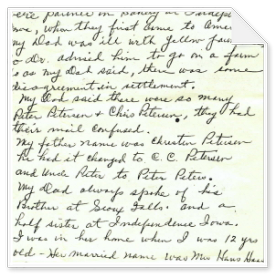 were partner in Bakery in Europe
ove, when they first came to Ameri
my Dad was ill with yellow fev
o Dr. advised him to go on a farm
o as my Dad said, there was some
disagreement in settlement.
My Dad said there were so many
Peter Petersen & Chris Petersen, they had
their mail confused.
My father name was Christen Petersen
he had it changed to C. C. Petersen
and Uncle Peter to Peter Peters.
My Dad always spoke of his
Brother at Sioux Falls. and a
half sister at Independence Iowa.
I was in her home when I was 12 yrs
old - Her married name was Mrs Hans Hans